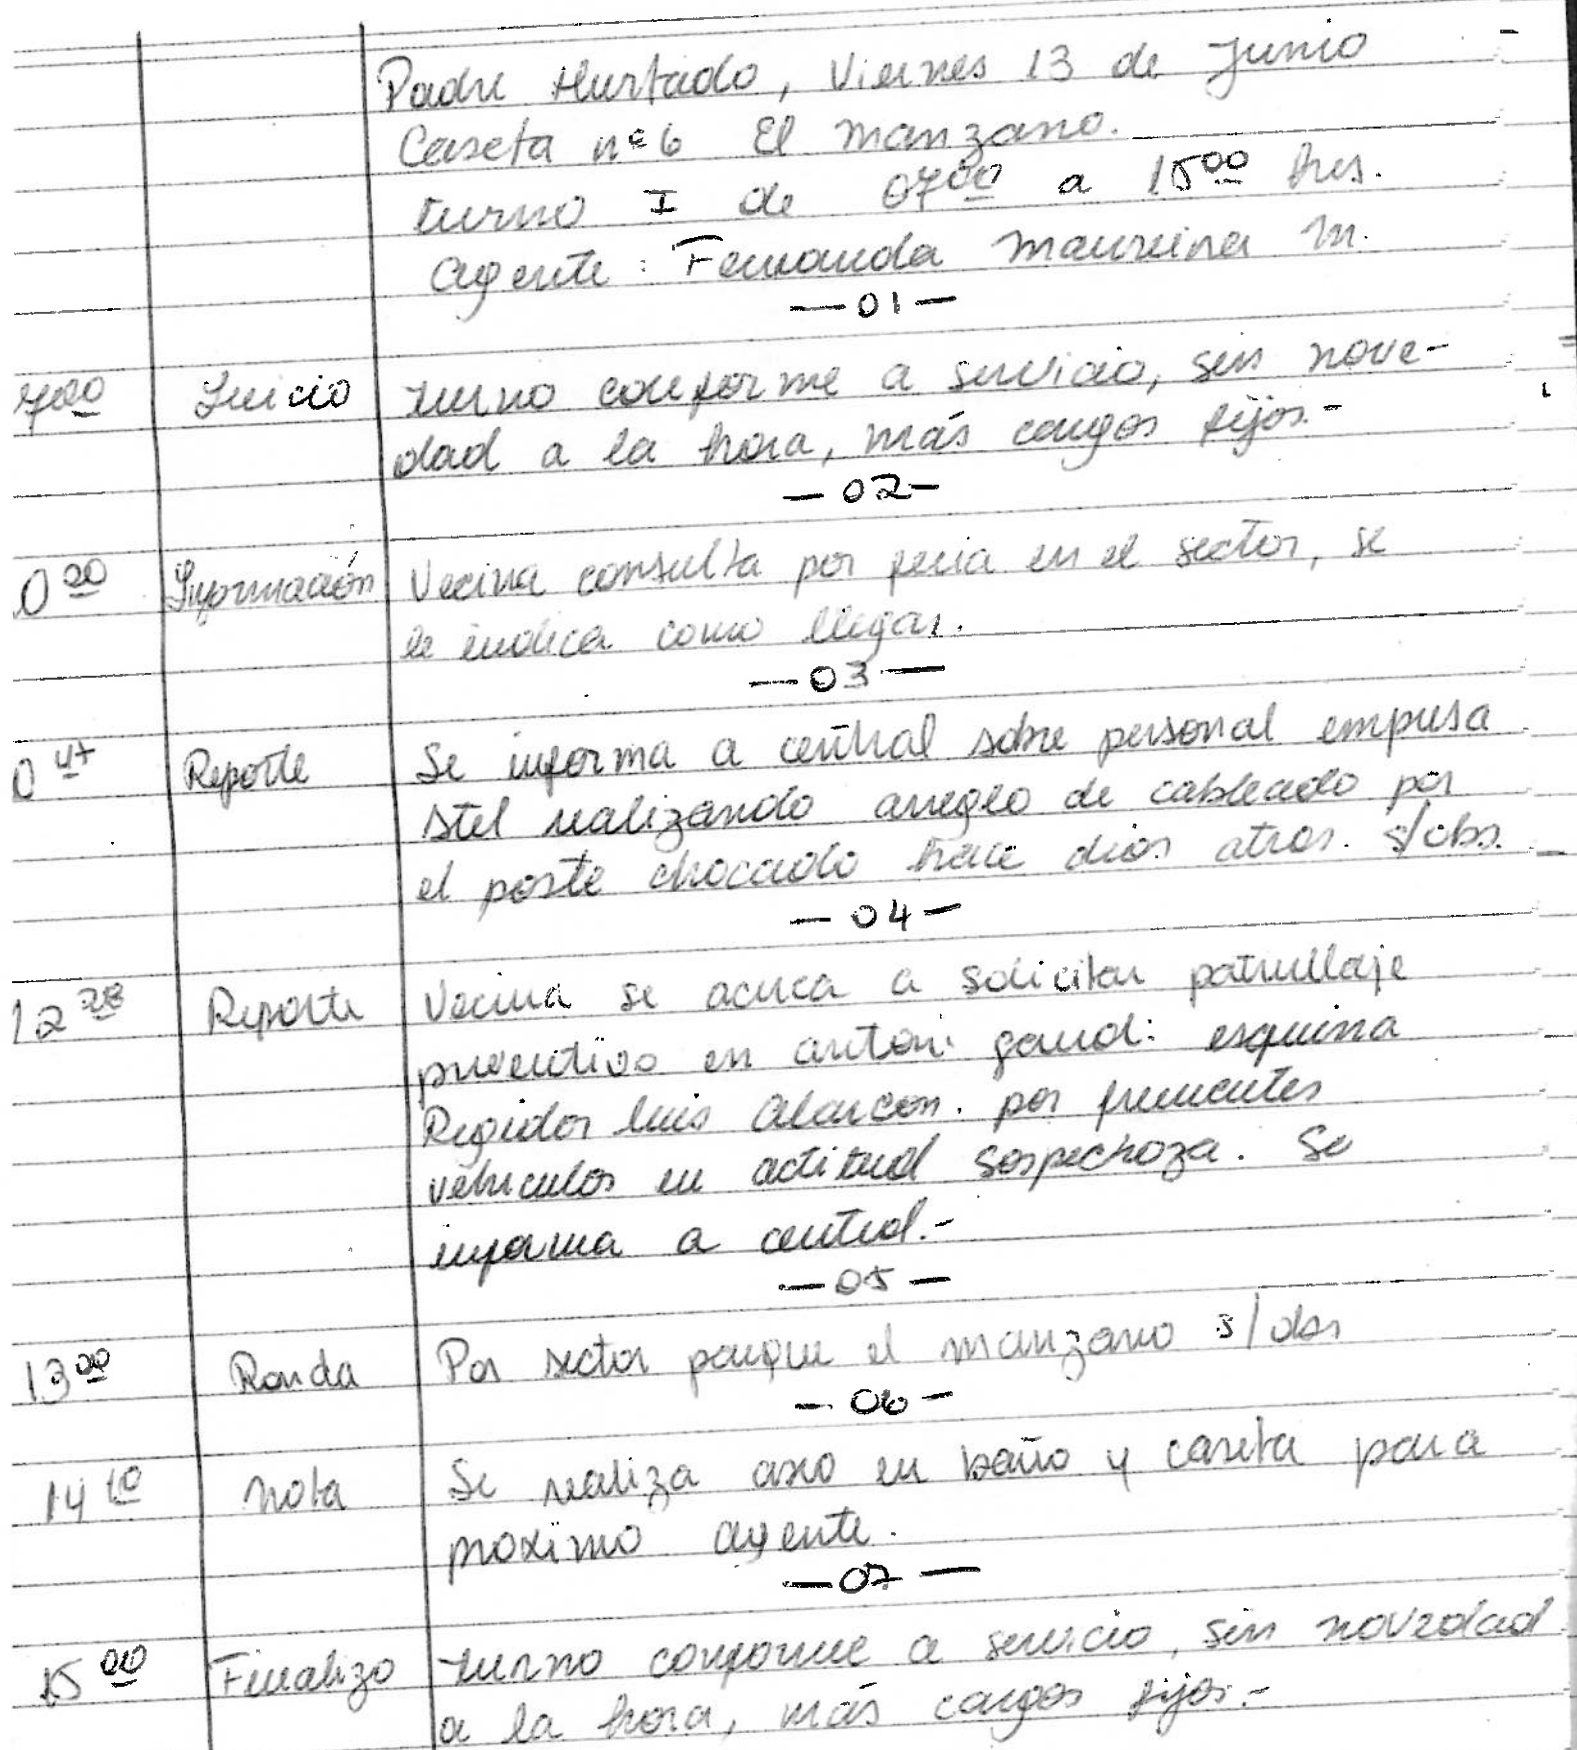 Padre Hurtado, Viernes 13 de Junio
Caseta n° 6 El manzano.
turno I de 0700 a 1500 hrs.
agente: Fernanda Maureira M.
—01—
700 Inicio turno conforme a servicio, sin nove-
dad a la hora, más cargos fijos.-
—02—
000 Información Vecina consulta por feria en el sector, se
le indica como llegar.
—03—
0 47 Reporte Se informa a central sobre personal empresa
stel realizando arreglo de cableado por
el poste chocado hace dias atras. s/obs.
—04—
12 28 Reporte Vecina se acerca a solicitar patrullaje
preventivo en antoni gaudi esquina
Regidor luis Alarcon. por frecuentes
vehiculos en actitud sospechoza. Se
informa a central.-
—05—
13 00 Ronda Por sector parque el manzano s/obs
—06—
14 10 nota Se realiza aseo en baño y caseta para
proximo agente.
—07—
15 00 Finalizo turno conforme a servicio, sin novedad
a la hora, más cargos fijos.-